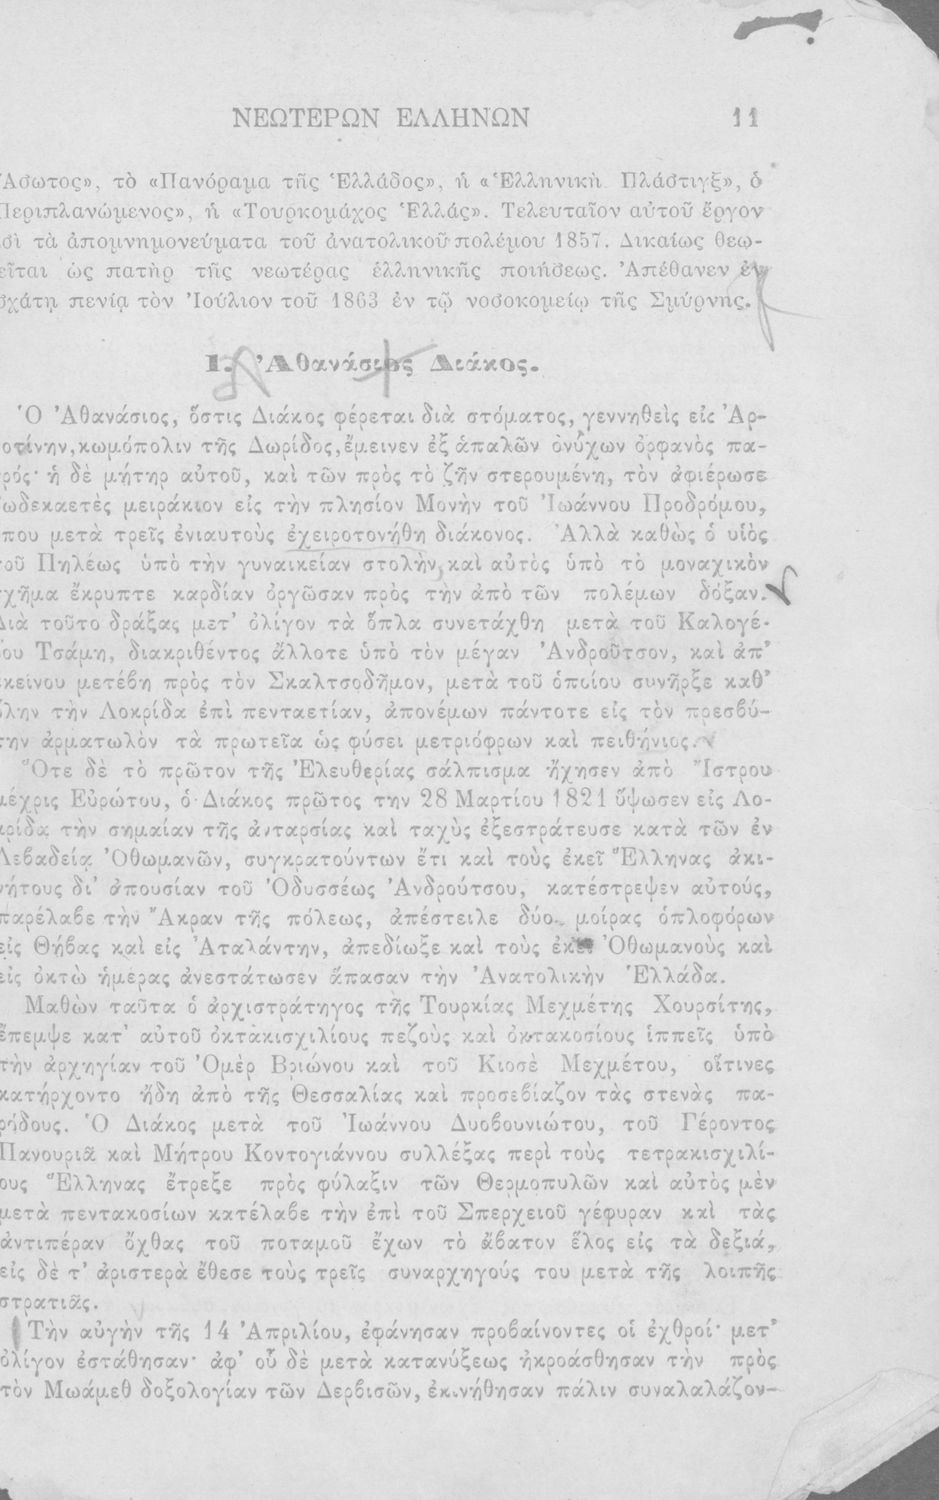 ΝΕΩΤΕΡΩΝ ΕΛΛΗΝΩΝ 11
Ἄσωτος», τὸ «Πανόραμα τῆς Ἑλλάδος», ἡ «Ἑλληνικὴ Πλάστιγξ», ὁ
Περιπλανώμενος», ἡ «Τουρκομάχος Ἑλλάς». Τελευταῖον αὐτοῦ ἔργον
σὶ τὰ ἀπομνημονεύματα τοῦ ἀνατολικοῦ πολέμου 1857. Δικαίως θεω-
εῖται ὡς πατὴρ τῆς νεωτέρας ἑλληνικῆς ποιήσεως. Ἀπέθανεν ἐν
σχάτῃ πενίᾳ τὸν Ἰούλιον τοῦ 1863 ἐν τῷ νοσοκομείῳ τῆς Σμύρνης.
1. Ἀθανάσιος Διάκος.
Ὁ Ἀθανάσιος, ὅστις Διάκος φέρεται διὰ στόματος, γεννηθεὶς εἰς Ἀρ-
οτίνην, κωμόπολιν τῆς Δωρίδος, ἔμεινεν ἐξ ἁπαλῶν ὀνύχων ὀρφανὸς πα-
ρός· ἡ δὲ μήτηρ αὐτοῦ, καὶ τῶν πρὸς τὸ ζῆν στερουμένη, τὸν ἀφιέρωσε
ωδεκαετὲς μειράκιον εἰς τὴν πλησίον Μονὴν τοῦ Ἰωάννου Προδρόμου,
που μετὰ τρεῖς ἐνιαυτοὺς ἐχειροτονήθη διάκονος. Ἀλλὰ καθὼς ὁ υἱὸς
τοῦ Πηλέως ὑπὸ τὴν γυναικείαν στολήν, καὶ αὐτὸς ὑπὸ τὸ μοναχικὸν
σχῆμα ἔκρυπτε καρδίαν ὀργῶσαν πρὸς τὴν ἀπὸ τῶν πολέμων δόξαν.
Διὰ τοῦτο δράξας μετ' ὀλίγον τὰ ὅπλα συνετάχθη μετὰ τοῦ Καλογέ-
ου Τσάμη, διακριθέντος ἄλλοτε ὑπὸ τὸν μέγαν Ἀνδροῦτσον, καὶ ἀπ'
ἐκείνου μετέβη πρὸς τὸν Σκαλτσοδῆμον, μετὰ τοῦ ὁποίου συνῆρξε καθ'
ὅλην τὴν Λοκρίδα ἐπὶ πενταετίαν, ἀπονέμων πάντοτε εἰς τὸν πρεσβύ-
την ἁρματωλὸν τὰ πρωτεῖα ὡς φύσει μετριόφρων καὶ πειθήνιος.
Ὅτε δὲ τὸ πρῶτον τῆς Ἐλευθερίας σάλπισμα ἤχησεν ἀπὸ Ἴστρου
μέχρις Εὐρώτου, ὁ Διάκος πρῶτος την 28 Μαρτίου 1821 ὕψωσεν εἰς Λο-
κρίδα τὴν σημαίαν τῆς ἀνταρσίας καὶ ταχὺς ἐξεστράτευσε κατὰ τῶν ἐν
Λεβαδείᾳ Ὀθωμανῶν, συγκρατούντων ἔτι καὶ τοὺς ἐκεῖ Ἕλληνας ἀκι-
νήτους δι' ἀπουσίαν τοῦ Ὀδυσσέως Ἀνδρούτσου, κατέστρεψεν αὐτούς,
παρέλαβε τὴν Ἄκραν τῆς πόλεως, ἀπέστειλε δύο μοίρας ὁπλοφόρων
εἰς Θήβας καὶ εἰς Ἀταλάντην, ἀπεδίωξε καὶ τοὺς ἐκεῖ Ὀθωμανοὺς καὶ
εἰς ὀκτὼ ἡμέρας ἀνεστάτωσεν ἅπασαν τὴν Ἀνατολικὴν Ἑλλάδα.
Μαθὼν ταῦτα ὁ ἀρχιστράτηγος τῆς Τουρκίας Μεχμέτης Χουρσίτης,
ἔπεμψε κατ' αὐτοῦ ὀκτακισχιλίους πεζοὺς καὶ ὀκτακοσίους ἱππεῖς ὑπὸ
τὴν ἀρχηγίαν τοῦ Ὀμὲρ Βριώνου καὶ τοῦ Κιοσὲ Μεχμέτου, οἵτινες
κατήρχοντο ἤδη ἀπὸ τῆς Θεσσαλίας καὶ προσεβίαζον τὰς στενὰς πα-
ρόδους. Ὁ Διάκος μετὰ τοῦ Ἰωάννου Δυοβουνιώτου, τοῦ Γέροντος
Πανουριᾶ καὶ Μήτρου Κοντογιάννου συλλέξας περὶ τοὺς τετρακισχιλί-
ους Ἕλληνας ἔτρεξε πρὸς φύλαξιν τῶν Θερμοπυλῶν καὶ αὐτὸς μὲν
μετὰ πεντακοσίων κατέλαβε τὴν ἐπὶ τοῦ Σπερχειοῦ γέφυραν καὶ τὰς
ἀντιπέραν ὄχθας τοῦ ποταμοῦ ἔχων τὸ ἄβατον ἕλος εἰς τὰ δεξιά,
εἰς δὲ τ' ἀριστερὰ ἔθεσε τοὺς τρεῖς συναρχηγούς του μετὰ τῆς λοιπῆς
στρατιᾶς.
Τὴν αὐγὴν τῆς 14 Ἀπριλίου, ἐφάνησαν προβαίνοντες οἱ ἐχθροί· μετ'
ὀλίγον ἐστάθησαν· ἀφ' οὗ δὲ μετὰ κατανύξεως ἠκροάσθησαν τὴν πρὸς
τὸν Μωάμεθ δοξολογίαν τῶν Δερβισῶν, ἐκινήθησαν πάλιν συναλαλάζον-